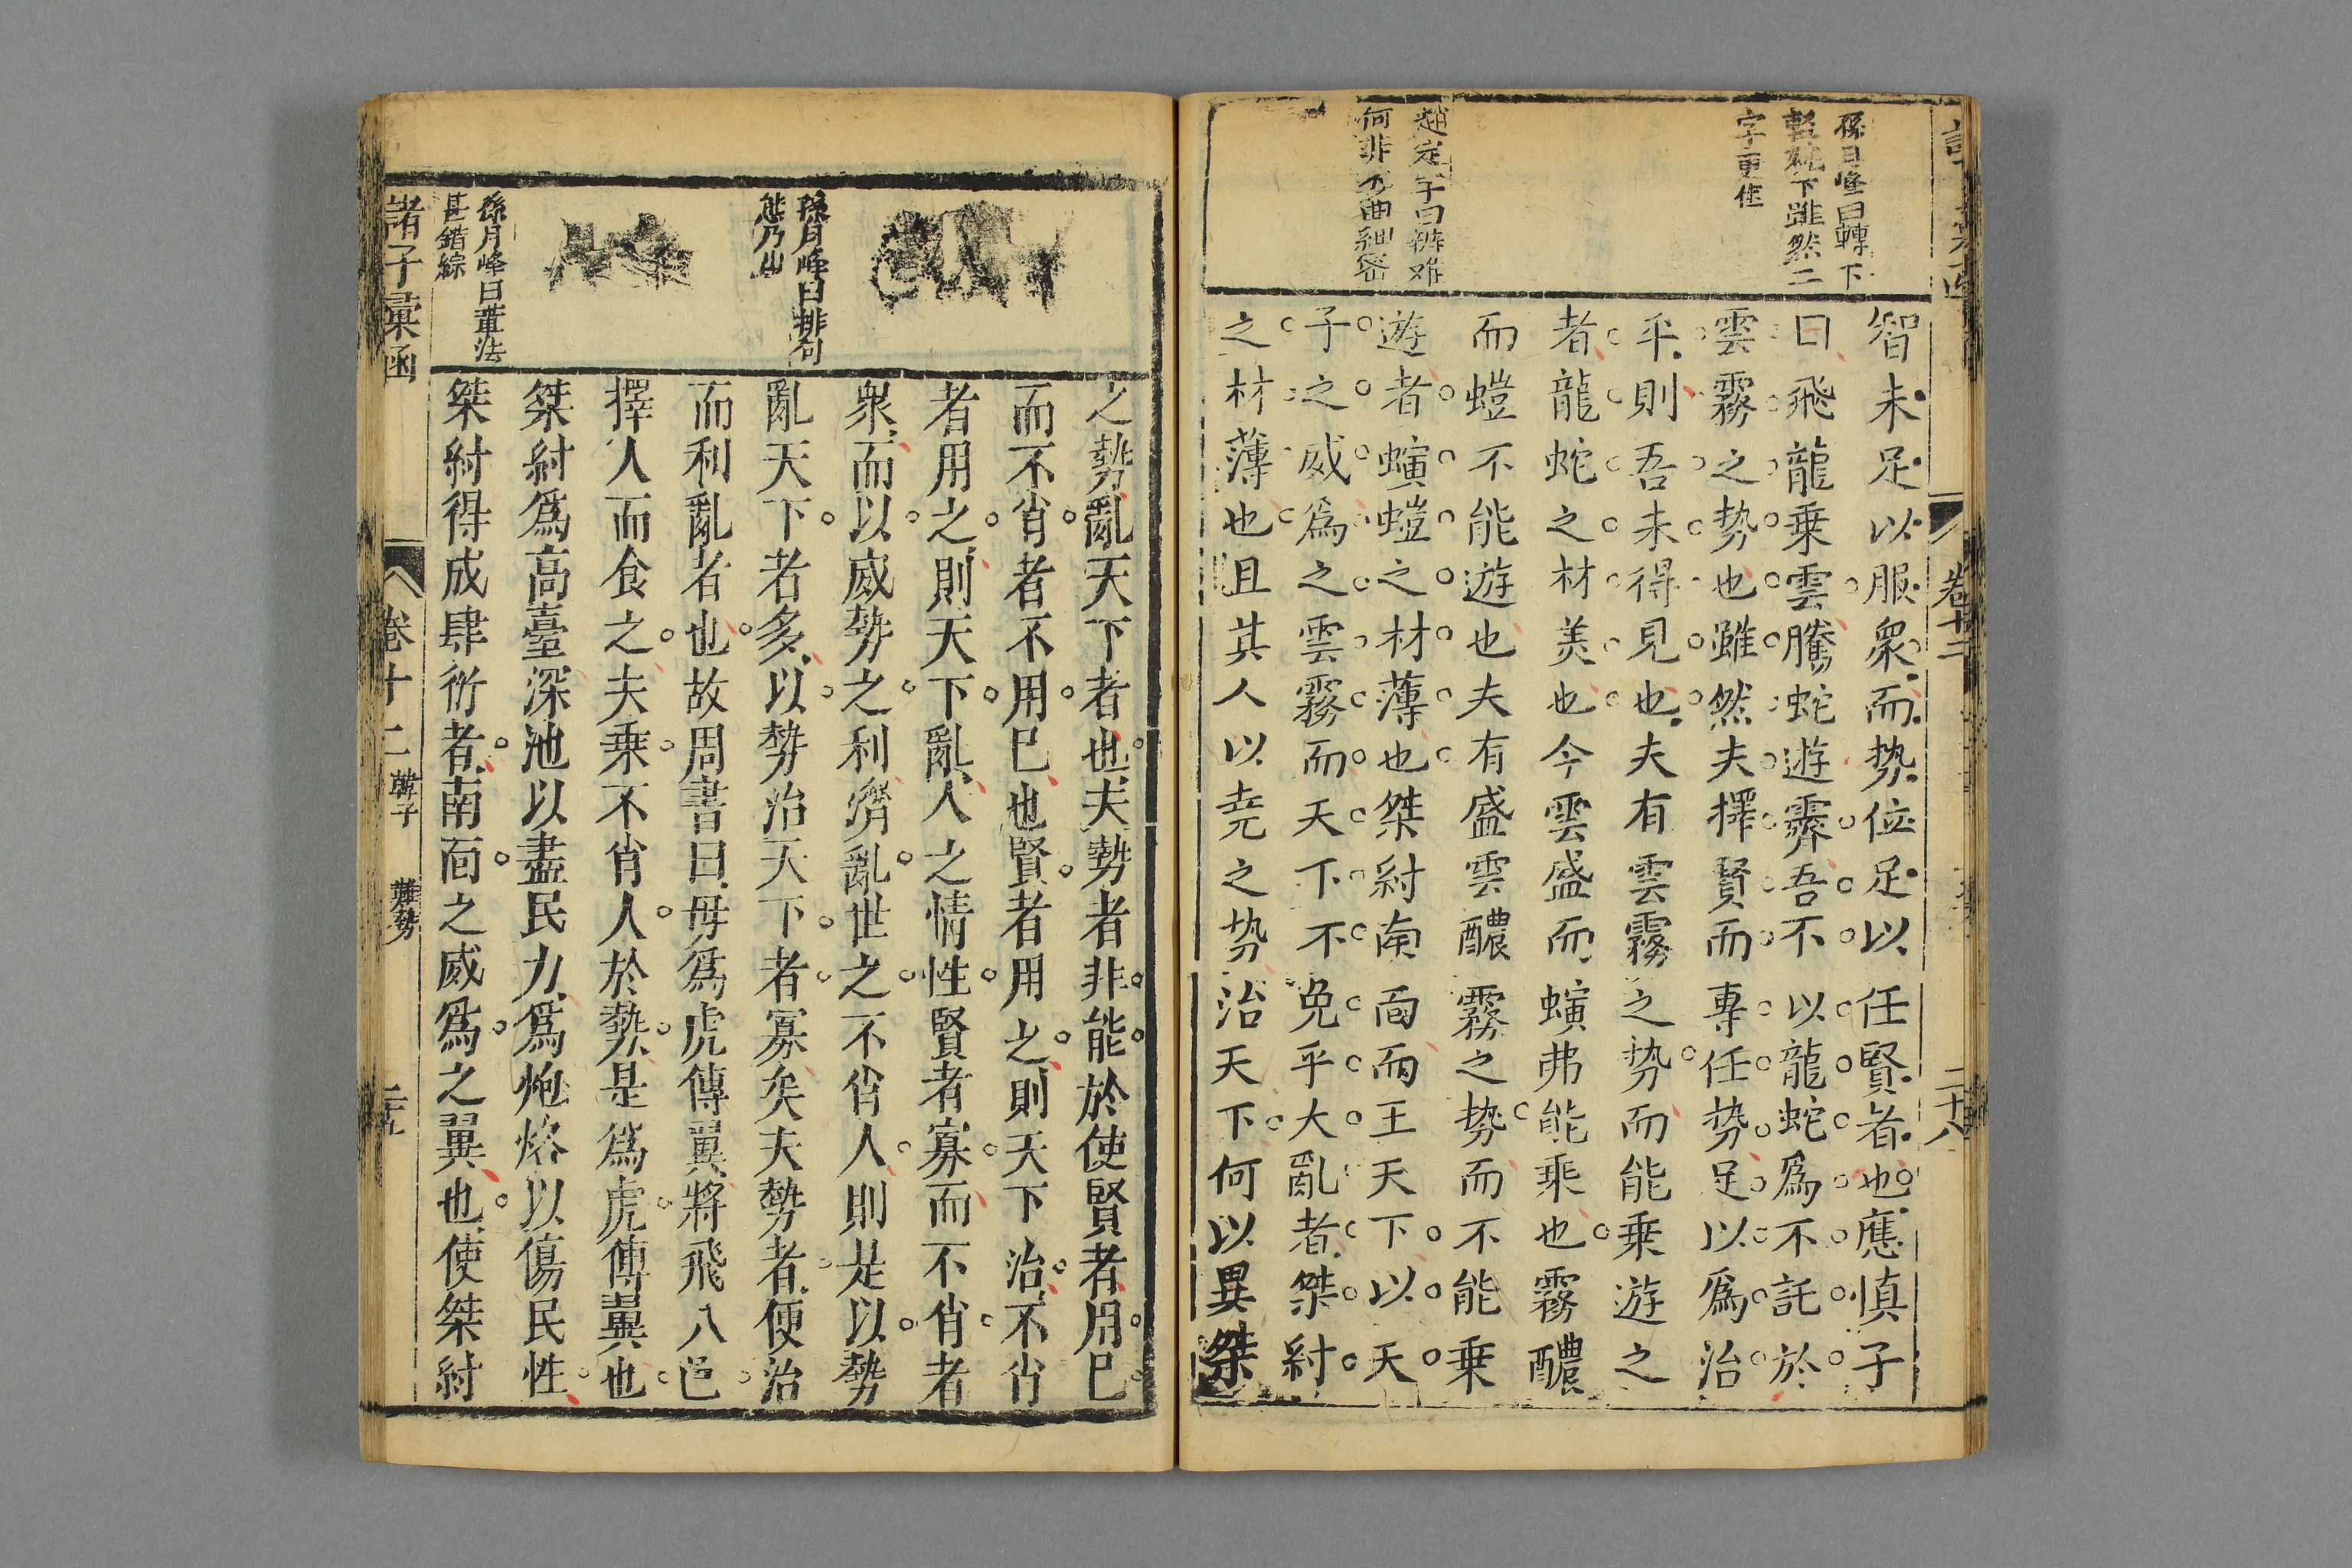 孫月峰曰轉下
下雖然二
字更佳
趙定宇曰辨难
何非
曲細密
智未足以服衆而势位足以任賢者也應慎子
曰飛龍乗雲騰蛇遊霧吾不以龍蛇爲不託於
雲霧之势也雖然夫擇賢而專任势足以爲治
乎則吾未得見也夫有雲霧之势而能乗遊之
者龍蛇之材美也今雲盛而螾弗能乗也霧醲
而螘不能遊也夫有盛雲醲霧之势而不能乗
遊者螾螘之材薄也桀紂南面而王天下以天
子之威爲之雲霧而天下不免乎大亂者桀紂
之材薄也且其人以堯之势治天下何以異桀
卷十二
二十八
孫月峰曰排句
孫月峰曰章法
甚錯綜
之勢亂天下者也夫勢者非能於使賢者用已
而不肖者不用已也賢者用之則天下治不肖
者用之則天下亂人之情性賢者寡而不肖者
衆而以威勢之利濟亂世之不肖人則是以勢
亂天下者多以勢治天下者寡矣夫勢者便治
而利亂者也故周書曰毋爲虎傅翼將飛八邑
擇人而食之夫乗不肖人於勢是爲虎傅翼也
桀紂爲高臺深池以盡民力爲炮烙以傷民性
桀紂得成肆行者南面之威爲之翼也使桀紂
諸子彙函
卷十二
韓子
難勢
二九